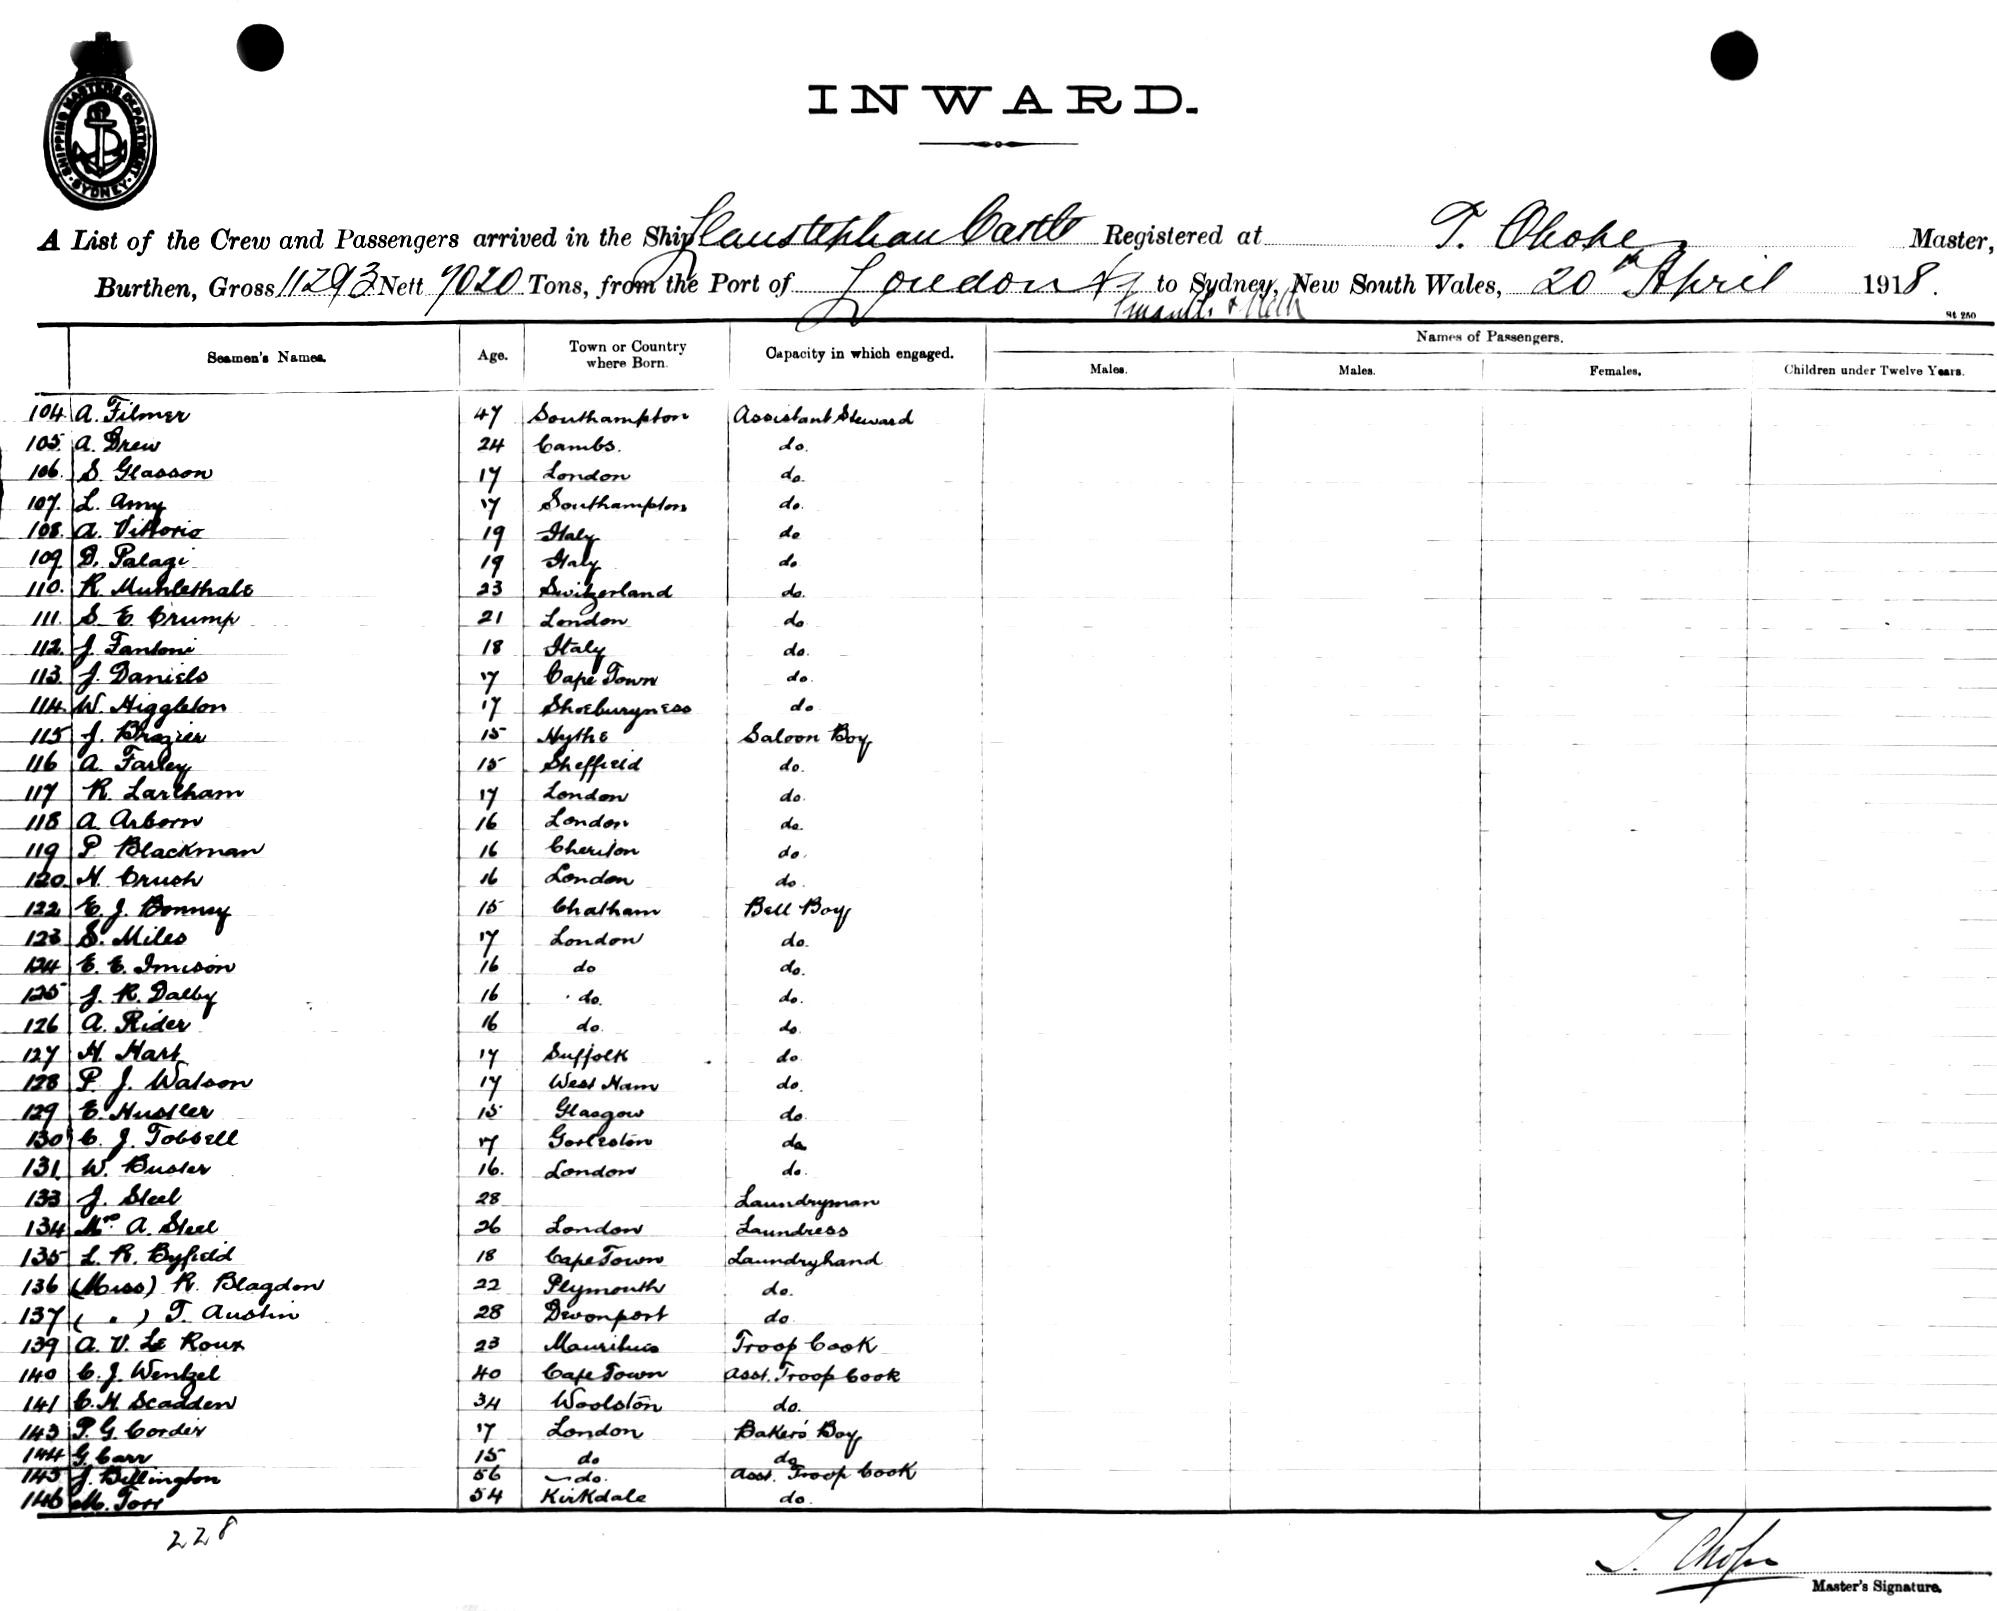 SHIPPING MASTERS DEPARTMENT
SYDNEY
INWARD.
A List of the Crew and Passengers arrived in the Ship Llanstephan Castle Registered at T. Chope Master,
Burthen, Gross 11293 Nett 7020 Tons, from the Port of London to Sydney, New South Wales, 20th April 1918.
St 250
Seamen's Names. Age. Town or Country where Born. Capacity in which engaged. Names of Passengers.
Males. Males. Females. Children under Twelve Years.
104 A. Filmer 47 Southampton Assistant Steward
105. A. Drew 24 Cambs. do.
106. S. Glasson 17 London do.
107. L. Amy 17 Southampton do.
108. A. Vittorio 19 Italy do
109 D. Palagi 19 Italy do
110. R. Muhlethale 23 Switzerland do.
111. S. E. Crump 21 London do
112. J. Fantoni 18 Italy do.
113. J. Daniels 17 Cape Town do.
114. W. Higgleton 17 Shoeburyness do
115 J. Brazier 15 Hythe Saloon Boy
116 A. Farley 15 Sheffield do.
117 R. Lartham 17 London do.
118 A. Arborn 16 London do.
119 P. Blackman 16 Cheriton do.
120. H. Crush 16 London do.
122 E. J. Bonney 15 Chatham Bell Boy
123 S. Miles 17 London do.
124 E. E. Imison 16 do do.
125 J. R. Dalby 16 do. do.
126 A. Rider 16 do. do.
127 H. Hart 17 Suffolk do.
128 P. J. Watson 17 West Ham do.
129 E. Hustler 15 Glasgow do.
130 C. J. Tobsell 17 Gorleston do
131. W. Buster 16. London do.
133 J. Steel 28 Laundryman
134 Mrs. A. Steel 26 London Laundress
135 L. R. Byfield 18 Cape Town Laundryhand
136 (Miss) R. Blagdon 22 Plymouth do.
137 ( " ) T. Austin 28 Devonport do.
139 A. V. Le Roux 23 Mauritius Troop Cook
140 C. J. Wentzel 40 Cape Town Asst. Troop Cook
141 C. H. Scadden 34 Woolston do.
143 P. G. Corder 17 London Baker's Boy
144 G. Carr 15 do do
145 J. Bellington 56 do. Asst. Troop Cook
146 M. Torr 54 Kirkdale do.
228
T. Chope
Master's Signature.